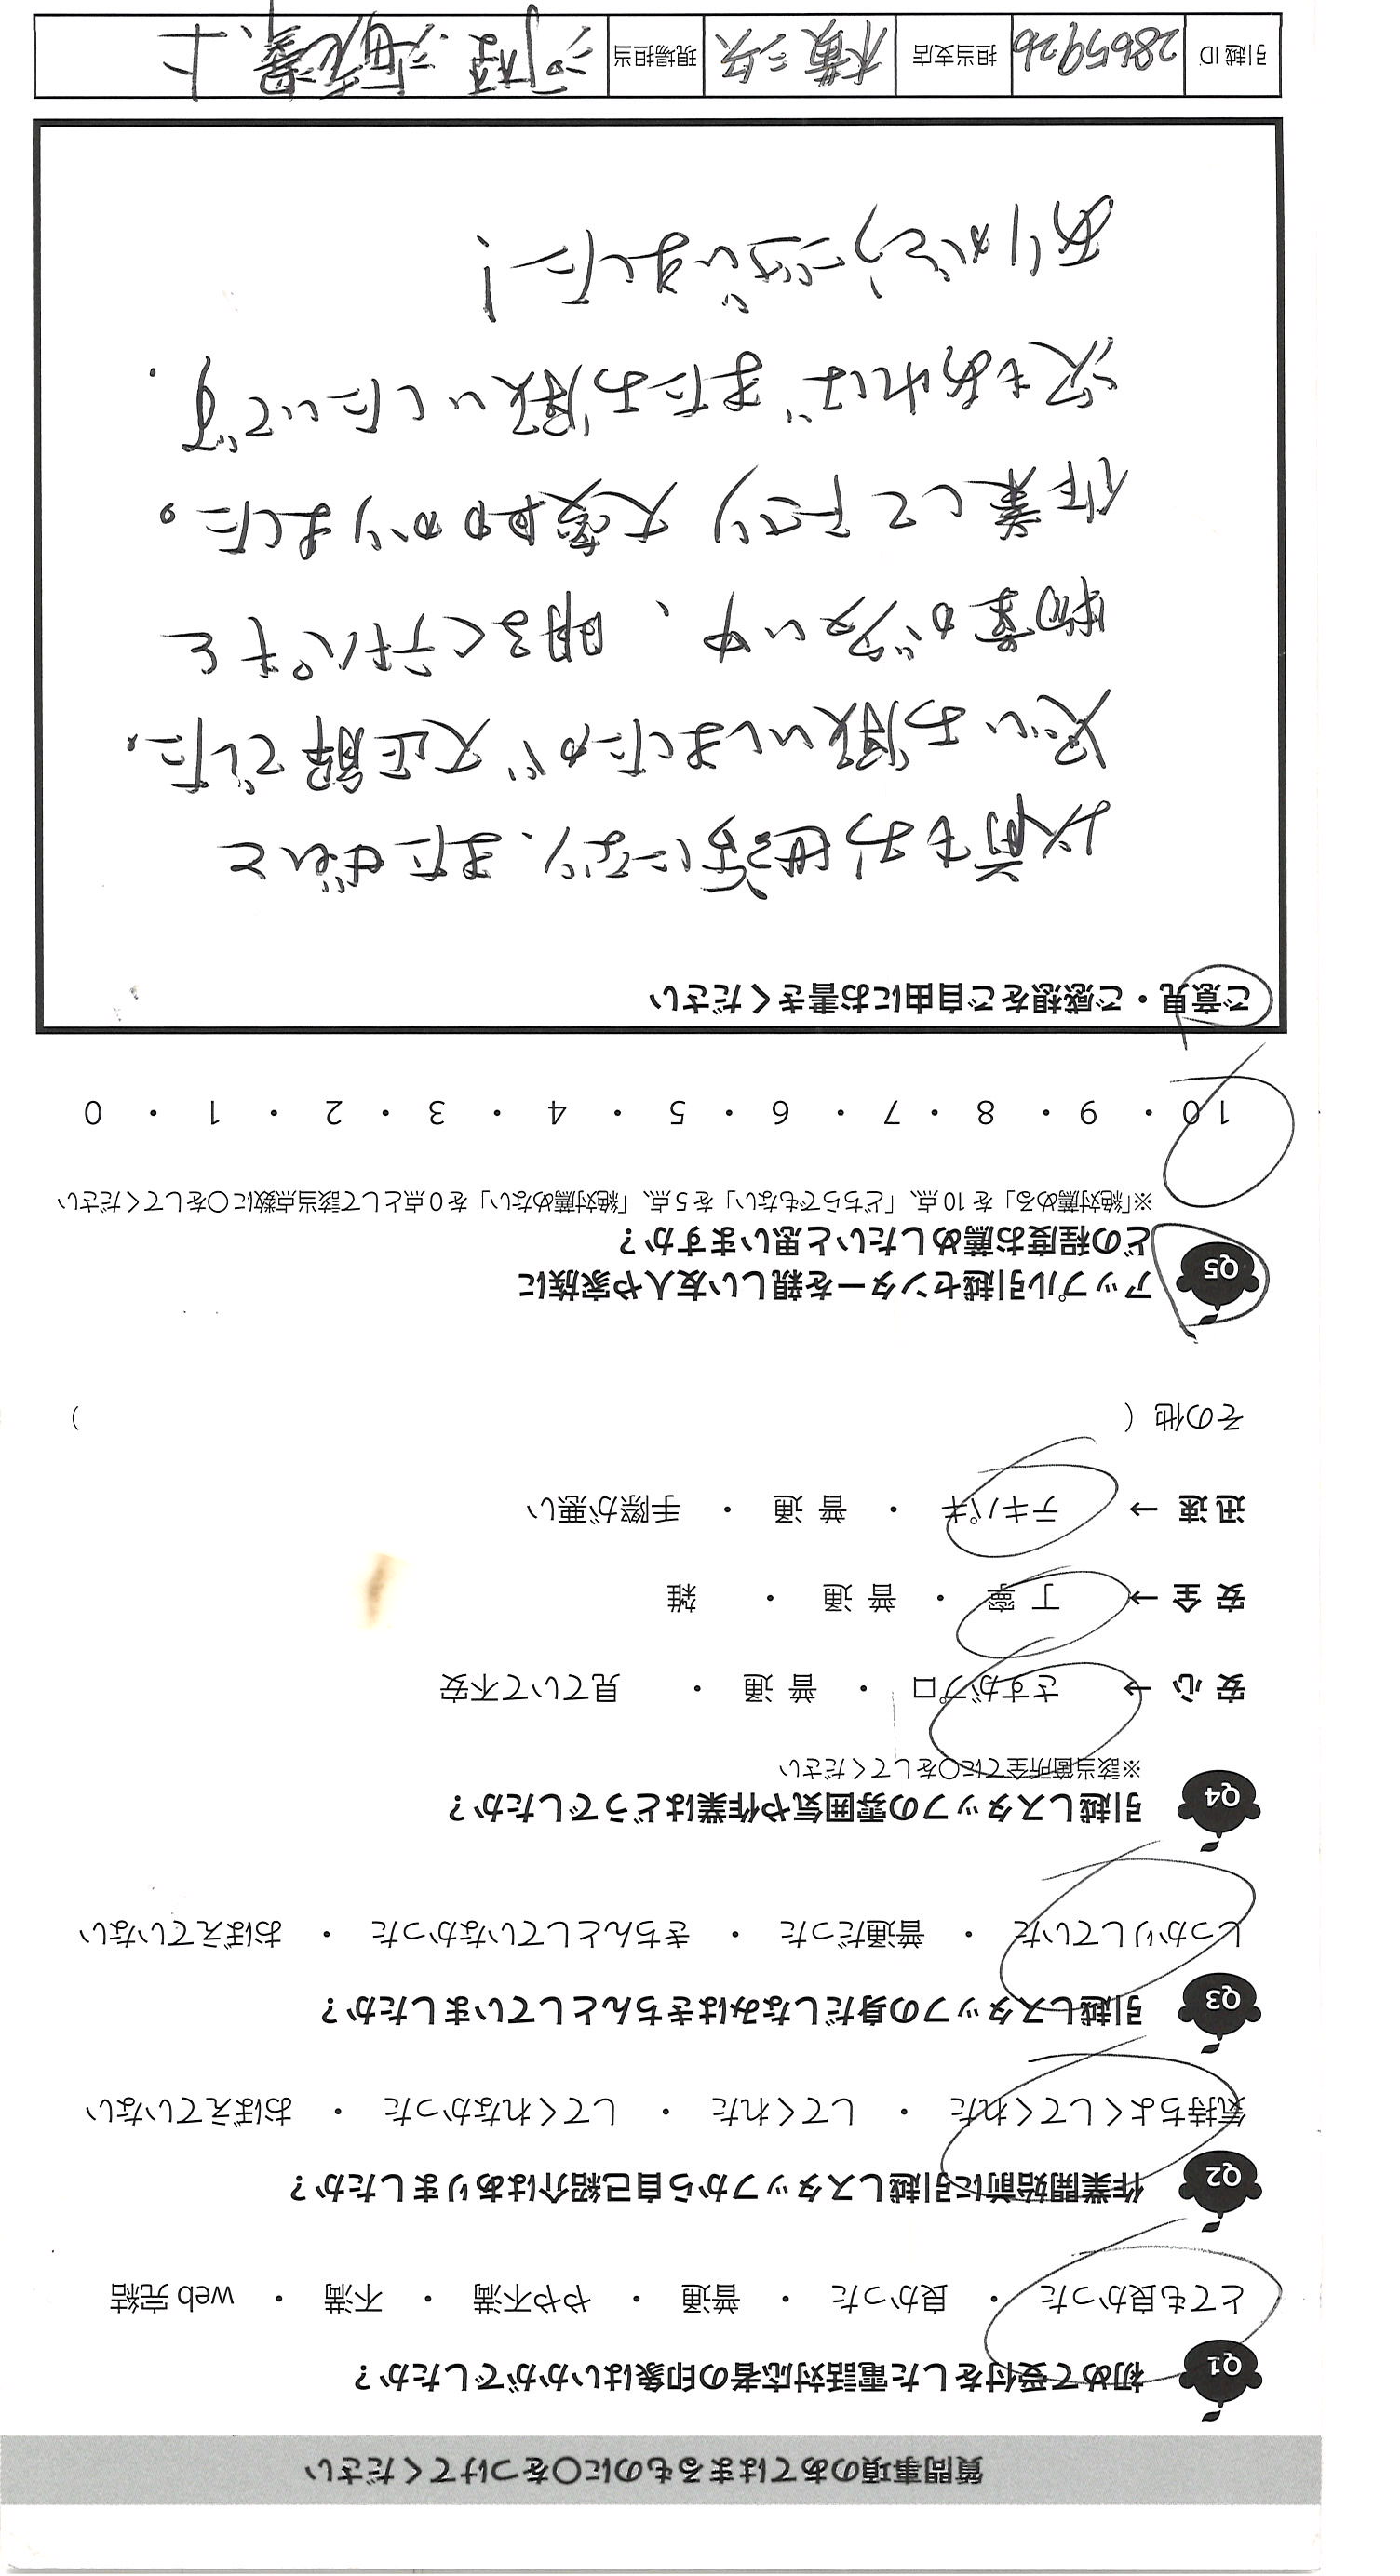 質問事項のあてはまるものに〇をつけてください
Q1 初めて受付をした電話対応者の印象はいかがでしたか？
とても良かった ・ 良かった ・ 普通 ・ やや不満 ・ 不満 ・ web 完結
Q2 作業開始前に引越しスタッフから自己紹介はありましたか？
気持ちよくしてくれた ・ してくれた ・ してくれなかった ・ おぼえていない
Q3 引越しスタッフの身だしなみはきちんとしていましたか？
しっかりしていた ・ 普通だった ・ きちんとしていなかった ・ おぼえていない
Q4 引越しスタッフの雰囲気や作業はどうでしたか？
※該当箇所全てに〇をしてください
安 心 → さすがプロ ・ 普 通 ・ 見ていて不安
安 全 → 丁 寧 ・ 普 通 ・ 雑
迅 速 → テキパキ ・ 普 通 ・ 手際が悪い
その他（ ）
Q5 アップル引越センターを親しい友人や家族に
どの程度お薦めしたいと思いますか？
※「絶対薦める」を 10 点、「どちらでもない」を 5 点、「絶対薦めない」を 0 点として該当点数に〇をしてください
10 ・ 9 ・ 8 ・ 7 ・ 6 ・ 5 ・ 4 ・ 3 ・ 2 ・ 1 ・ 0
ご意見・ご感想をご自由にお書きください
以前もお世話になり、またぜひと
思いお願いしましたが大正解でした。
物量が多い中、明るくテキパキと
作業して下さり大変助かりました。
次もあればまたお願いしたいです.
ありがとうございました!
引越 ID 2865926 担当支店 横三矢 現場担当